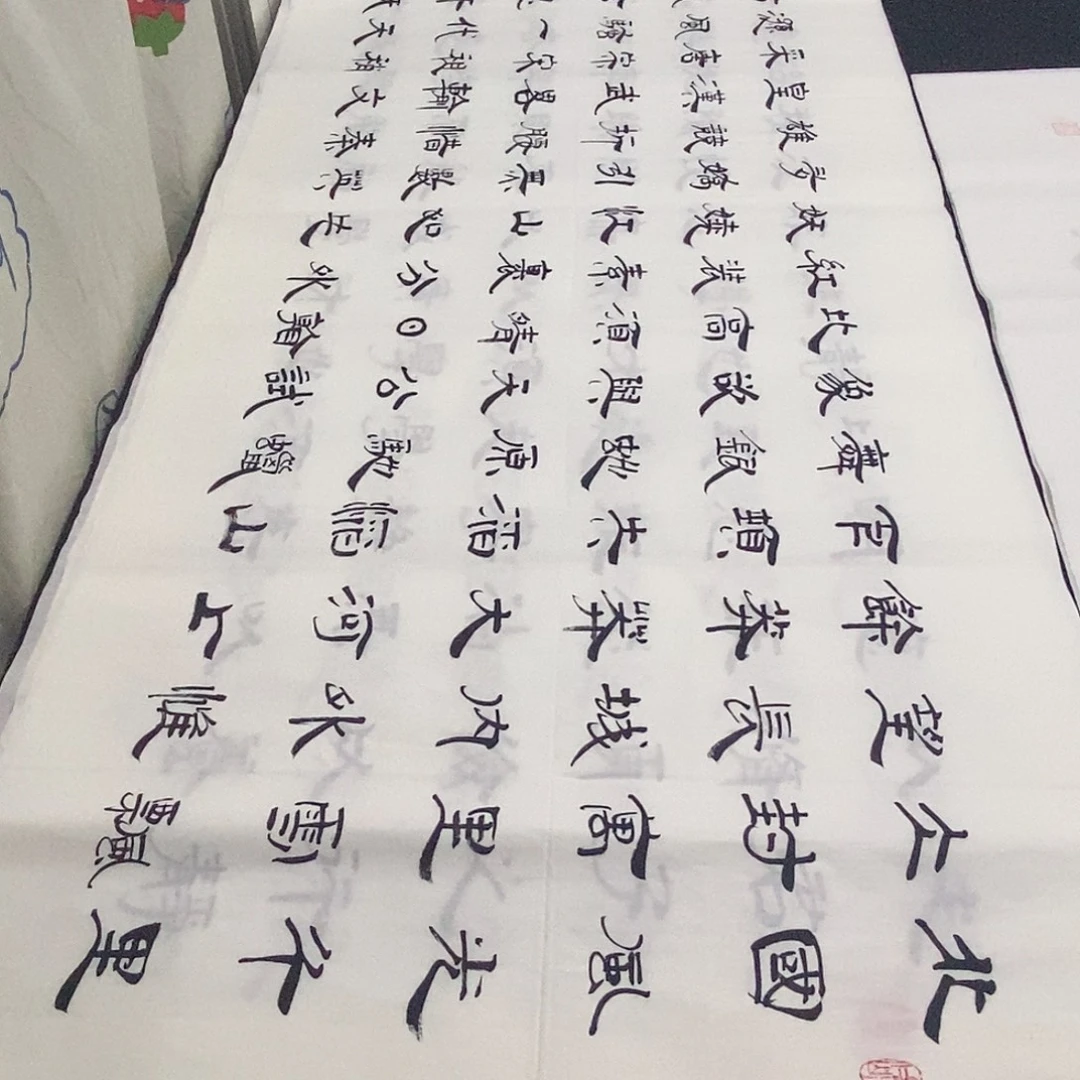 北國風光千里
仌封萬里雪飄
望長城内外惟
餘莽莽大河上
下頓失滔滔山
舞銀蛇原馳蠟
象欲與天公試
比高須晴日看
紅裝素裹分外
妖嬈江山如此
多嬌引無數英
雄競折腰惜秦
皇漢武略輸文
采唐宗宋祖稍
遜風騷一代天